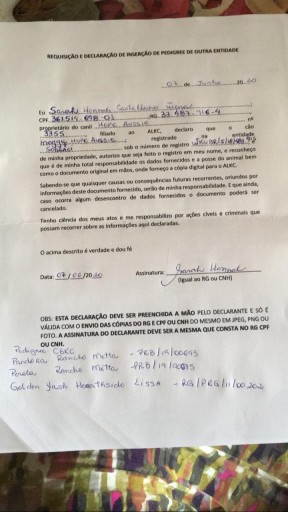 REQUISIÇÃO E DECLARAÇÃO DE INSERÇÃO DE PEDIGREE DE OUTRA ENTIDADE
07 de Junho 20
Eu Sarah Hannah
CPF RG
proprietário do canil HOPE AUSSIE nº
3355 filiado ao ALKC, declaro que o cão
registrado na entidade
sob o número de registro
de minha propriedade, autorizo que seja feito o registro em meu nome, e reconheço
que é de minha total responsabilidade os dados fornecidos e a posse do animal bem
como o documento original em mãos, onde forneço a cópia digital para o ALKC.
Sabendo-se que quaisquer causas ou consequências futuras recorrentes, oriundos por
informações deste documento fornecido, serão de minha responsabilidade. E que ainda,
caso ocorra algum desencontro de dados fornecidos o documento poderá ser
cancelado.
Tenho ciência dos meus atos e me responsabilizo por ações cíveis e criminais que
possam recorrer sobre as informações aqui declaradas.
O acima descrito é verdade e dou fé
Data: 07/06/20 Assinatura: Sarah Hannah
(Igual ao RG ou CNH)
OBS: ESTA DECLARAÇÃO DEVE SER PREENCHIDA A MÃO PELO DECLARANTE E SÓ É
VÁLIDA COM O ENVIO DAS CÓPIAS DO RG E CPF OU CNH DO MESMO EM JPEG, PNG OU
FOTO. A ASSINATURA DO DECLARANTE DEVE SER A MESMA QUE CONSTA NO RG CPF
OU CNH.
Pedigree CBKC
Pandora Rancho Metta - PRB/19/00695
Perola Rancho Metta
Golden Jack Heartside Lissa - RG/PRG/11/00